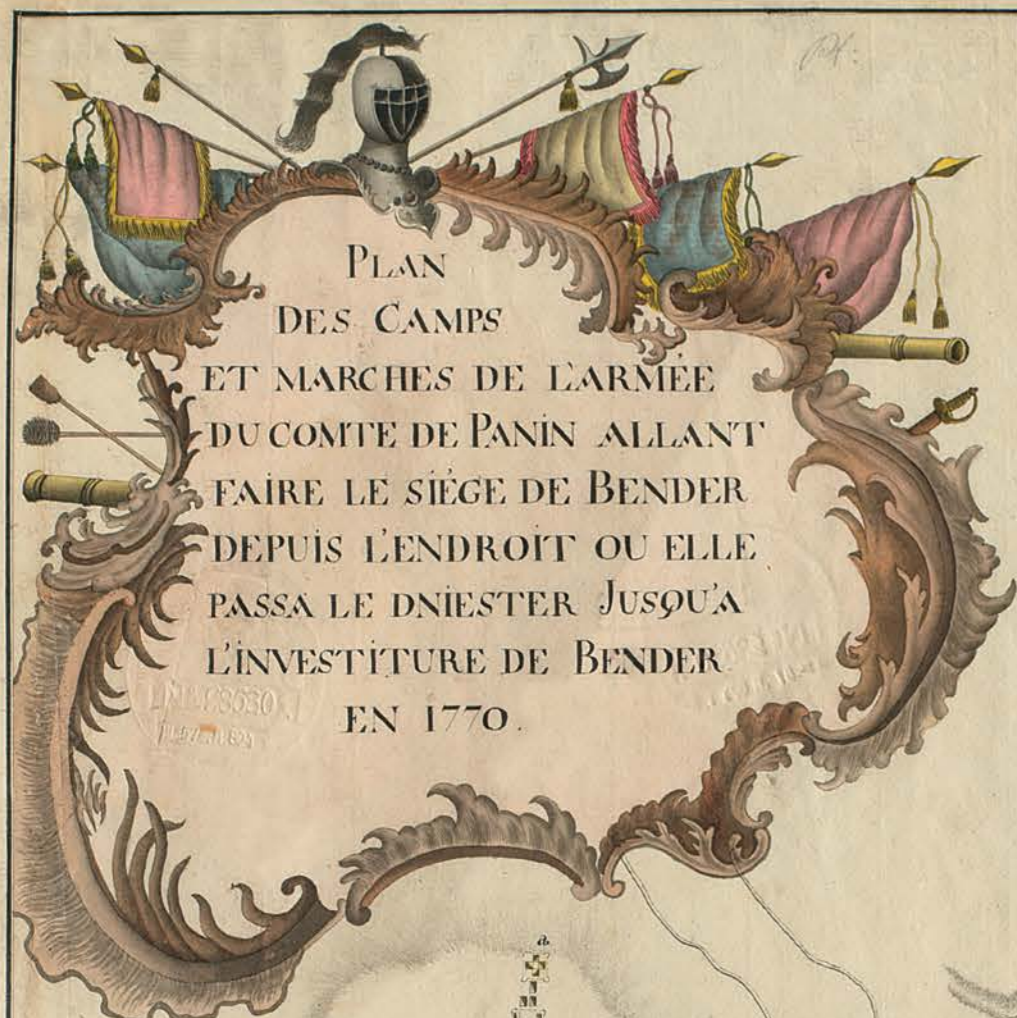 PLAN
DES CAMPS
ET MARCHES DE L'ARMÉE
DU COMTE DE PANIN ALLANT
FAIRE LE SIÉGE DE BENDER
DEPUIS L'ENDROIT OU ELLE
PASSA LE DNIESTER JUSQU'A
L'INVESTITURE DE BENDER
EN 1770.
a.